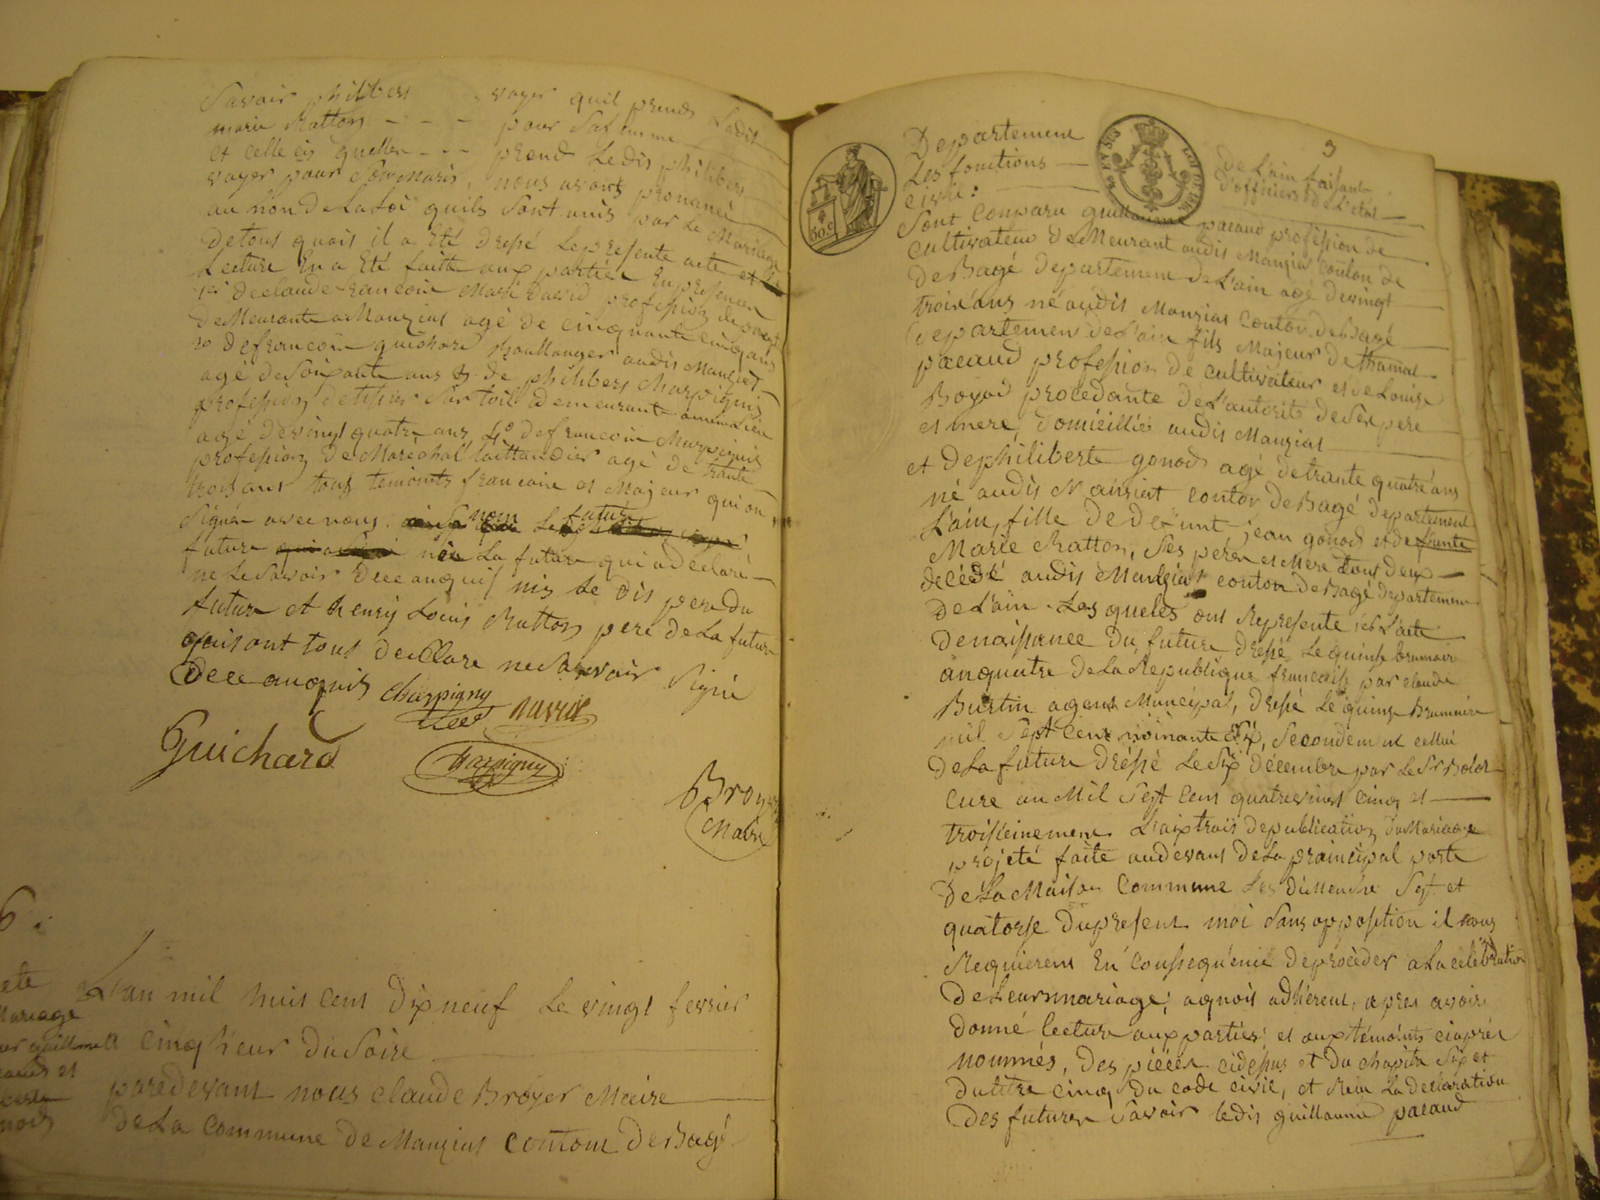 Savoir philibert voyer quil prend Ladit
marie Ratton - - - pour Sa femme
et celle cy quelle - - - prend Le dis philibert
voyer pour Son Maris, nous avons prononcé
au non de La Loi quils Sont unis par Le Mariage
De tous quois il a Eté dressé Le presente acte et
Lecture En a Eté faitte aux partiéz En presence
De Claude francois Marie David profession de
De Meurante a Manziat agé de cinquante cinq ans
2º de francois guichard Boullanger audis Manziat
agé de Soixante ans 3º de philibert Charpigny
profession de tissier Sur toil demeurant
agé de vingt quatre ans 4º de francois
profession de Marechal taittandier agé de trante
trois ans tous temoints francoise et Majeur qui on
Signér avec nous
future nis La future qui a declaré
ne Le Savoir De ce anquis nis Le dis pere du
future et henry Louis Ratton pere de La future
qui sont tous declare ne Savoir Signé
De ce anquis Charpigny David
Guichard Charpigny
Broyer
Maire
6.
L'an mil huis cens Dix neuf Le vingt fevrier
a cinq heur Du Soire
par devant nous claude Broyer Maire
De La Commune De Manziat contont De Bagé
Departement De L'ain faisant
Les fonctions D'officiers De L'etat
civil:
Sont Comparu guillaume pacaud profession de
Cultivateur De Meurant audis Manziat Conton de
De Bagé Departement De L'ain agé De vingt
troix ans né audis Manziat Conton De Bagé
Departement De L'ain fils Majeur De thomas
pacaud profession De cultivateur et de Louise
Boyad procedante De L'autorité De Ses pere
et mere, Domicilliés audis Manziat
et De philiberte gonod agé De trante quatre ans
né audis Manziat conton De Bagé Departement
L'ain, fille De Defunt jean gonod et Defunte
Marie Ratton, Ses péres et Mere tous Deux
décédé audis Manziat conton De Bagé Departement
De L'ain. Les queles ons Represente, 1er L'acte
De naissance Du future Dressé Le quinse brumair
an quatre De La Republique francaise par claude
Burtin agens Municipal, Dressé Le quinze Brumaire
mil Sept Cens noinante , Secondement cellui
De La future Dréssé Le Six Décembre par Le Sr
Cure an Mil Sept Cens quatrevingt Cinq et
troisieinement L'aixtrais De publication Du Mariage
projeté faite au devans De La praincipal porte
De La Maison Commune Les Dimenche Sept et
quatorse Du present moi Sans opposition il nous
Requierent En Conssequénce De procéder a La celébration
De Leur mariage; a quois adhérent, apres avoir
Donné Lecture aux partiés et aux témoints ciaprés
nommés, Des piéces cidessus et Du chapitre Six et
Du titre Cinq Du code civil, et Reçu La declaration
Des futures Savoir Ledis guillaume pacaud